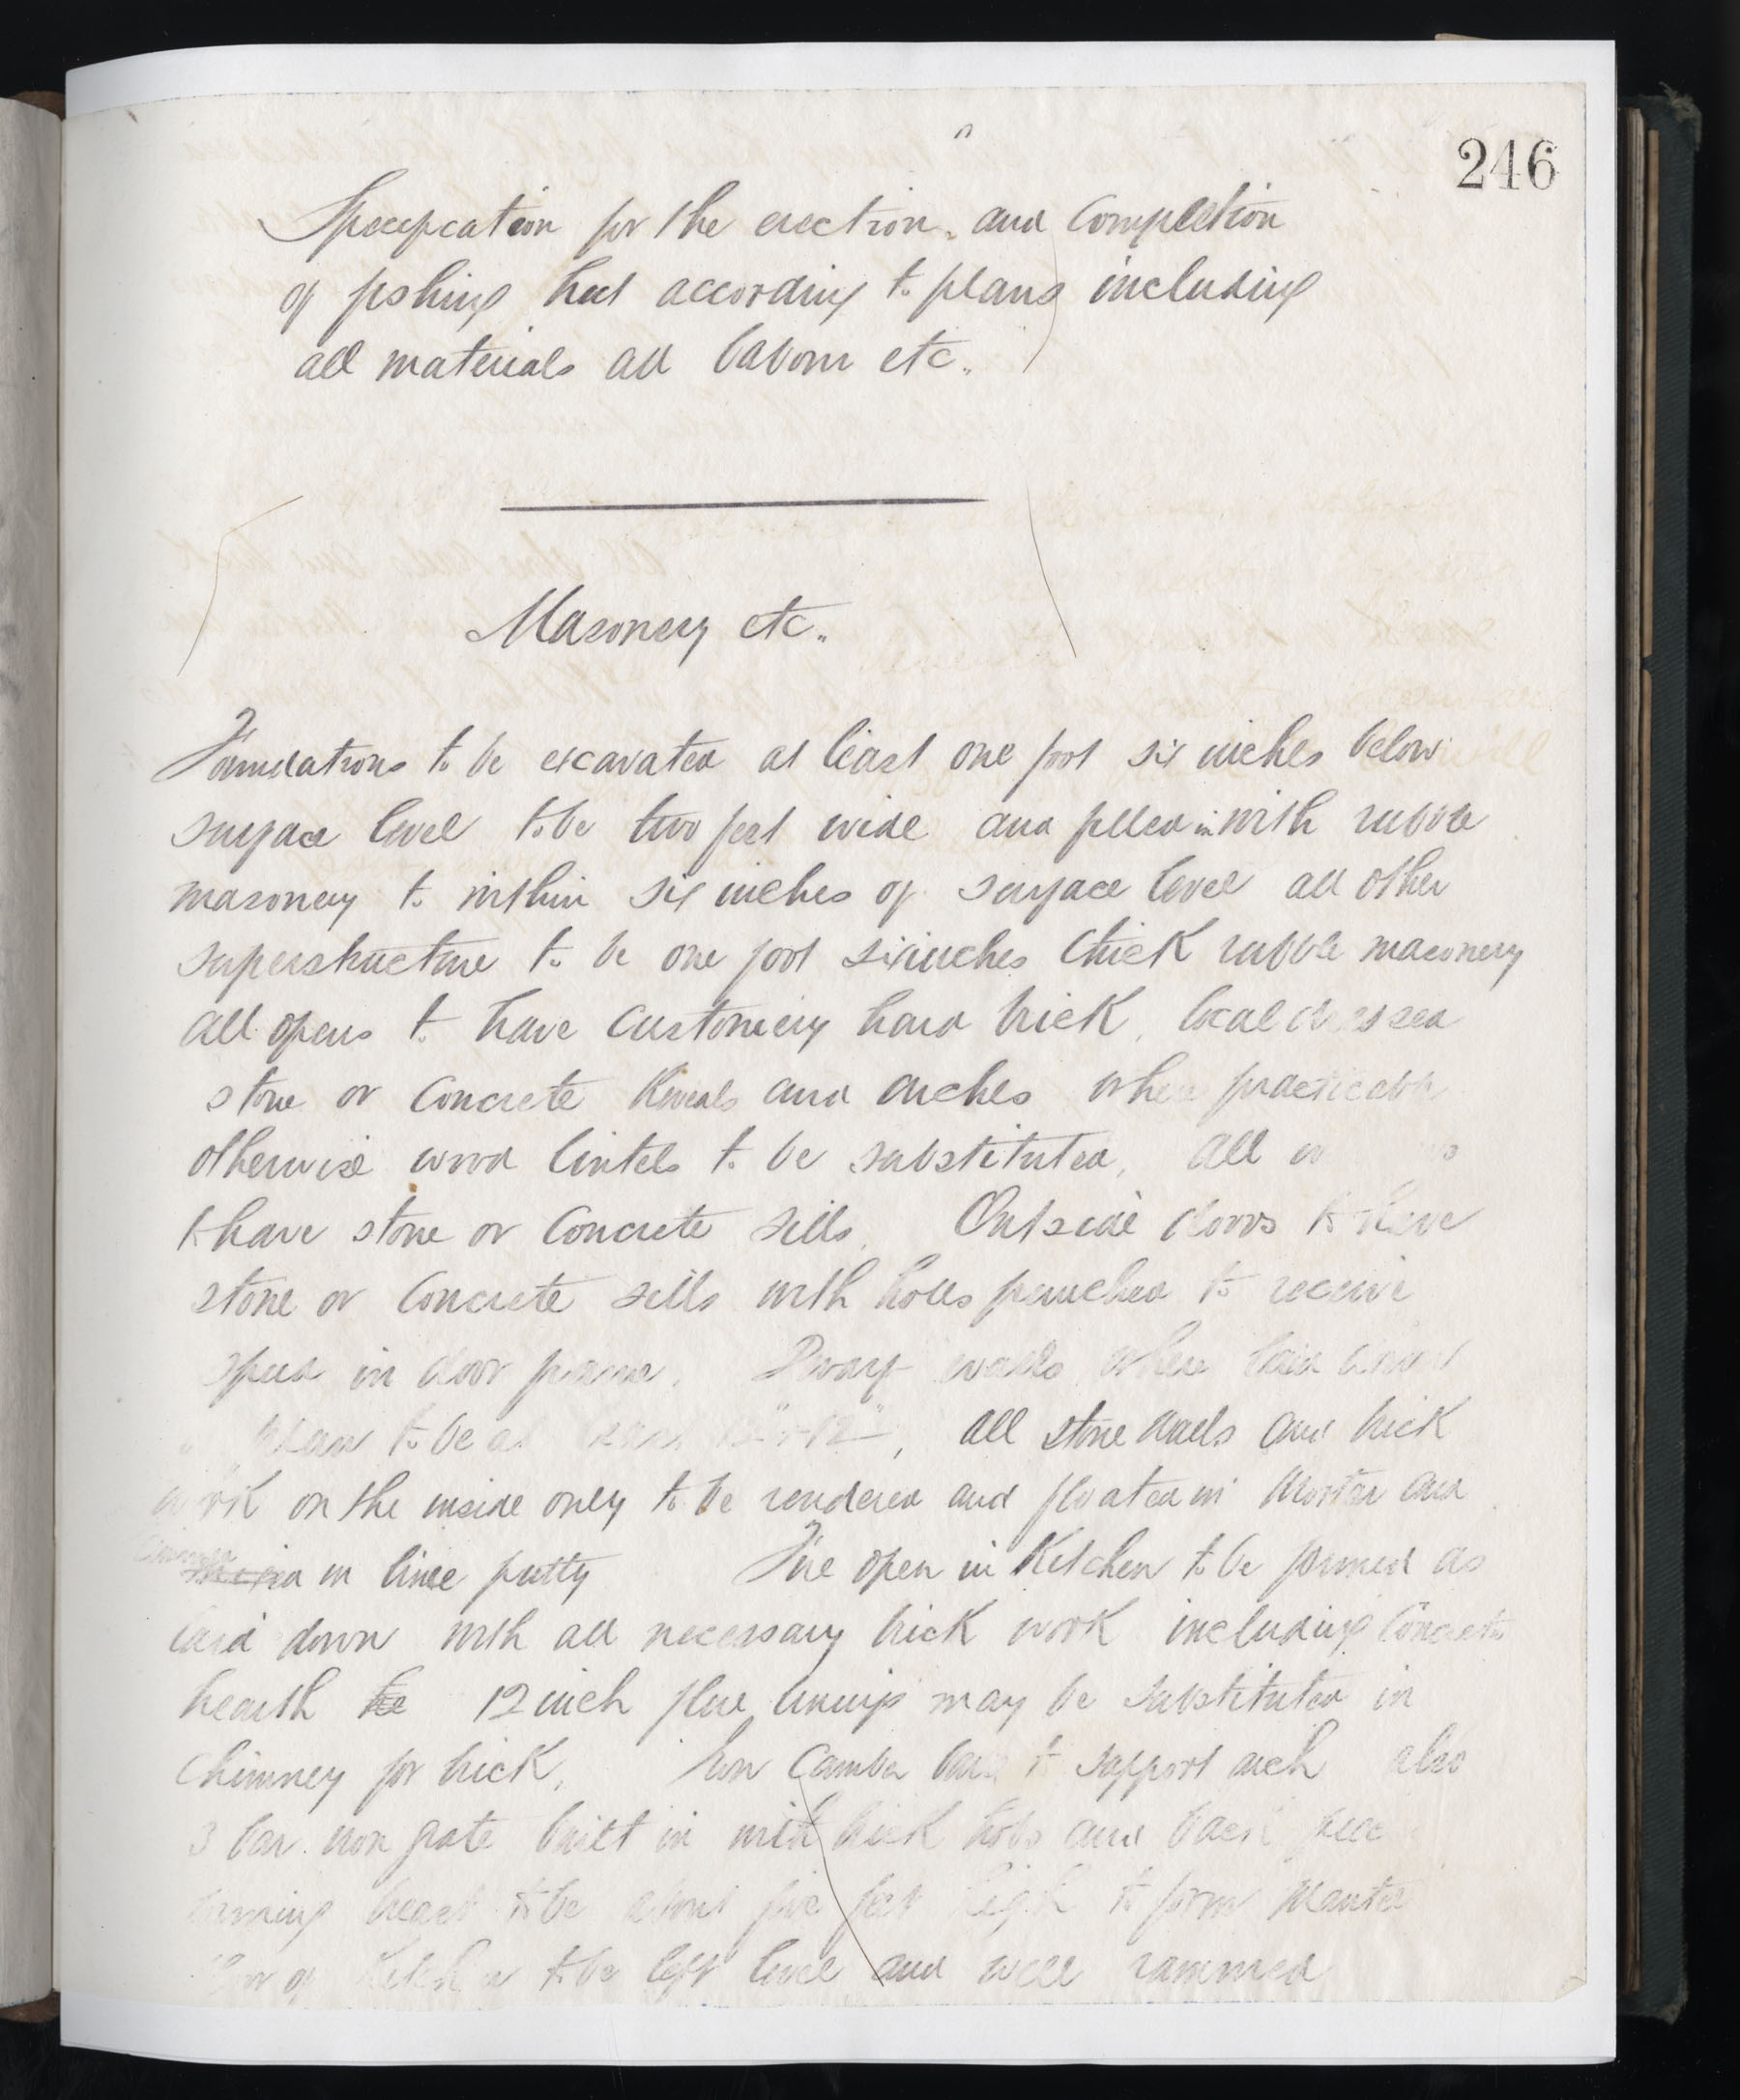 246
Specification for the erection and Completion
of fishing hut according to plans including
all materials all labour etc.
Masonery etc.
Foundations to be excavated at least one foot six inches below
surface level to be two feet wide and filled in with rubble
masonery to within six inches of surface level all other
superstructure to be one foot six inches thick rubble masonery
all opens to have customery hard brick, local dressed
stone or Concrete Reveals and arches where practicable
otherwise wood lintels to be substituted, All
to have stone or Concrete sills. Outside doors to have
stone or Concrete sills with holes punched to receive
in door frame. Dwarf walls where laid down
plan to be at least, all stone walls and brick
work on the inside only to be rendered and floated in Mortar and
in lime putty Fire open in Kitchen to be formed as
laid down with all necessary brick work including Concrete
hearth to 12 inch flue linings may be substituted in
Chimney for brick, Iron Camber bar to support arch also
3 bar iron grate built in with brick hobs and back
breast to be about five feet high to form Mantel
of Kitchen to be left level and well rammed